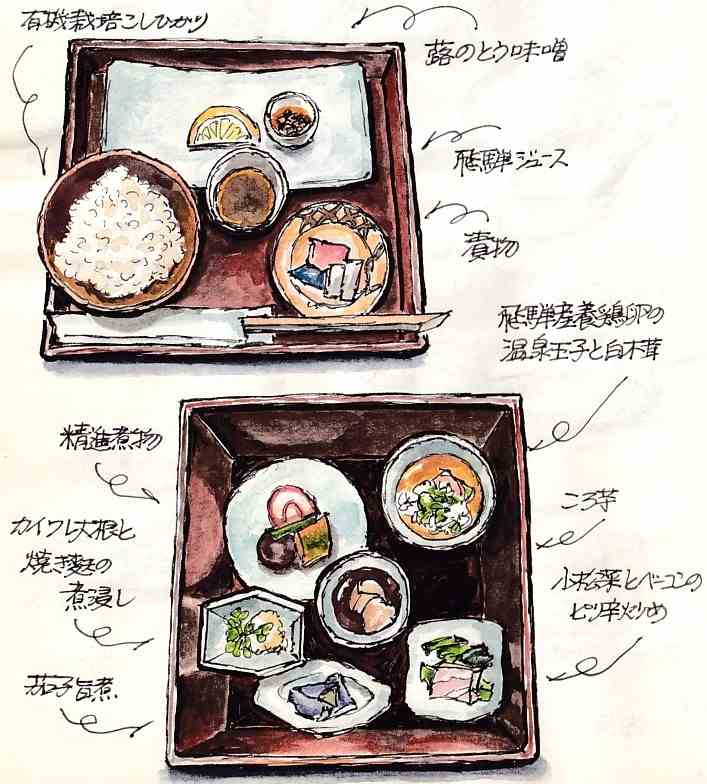 有機栽培こしひかり
蕗のとう味噌
飛騨ジュース
漬物
飛騨産養鶏卵の
温泉玉子と白木茸
精進煮物
カイワレ大根と
焼き麩の
煮浸し
茄子旨煮
ころ芋
小松菜とベーコンの
ピリ辛炒め